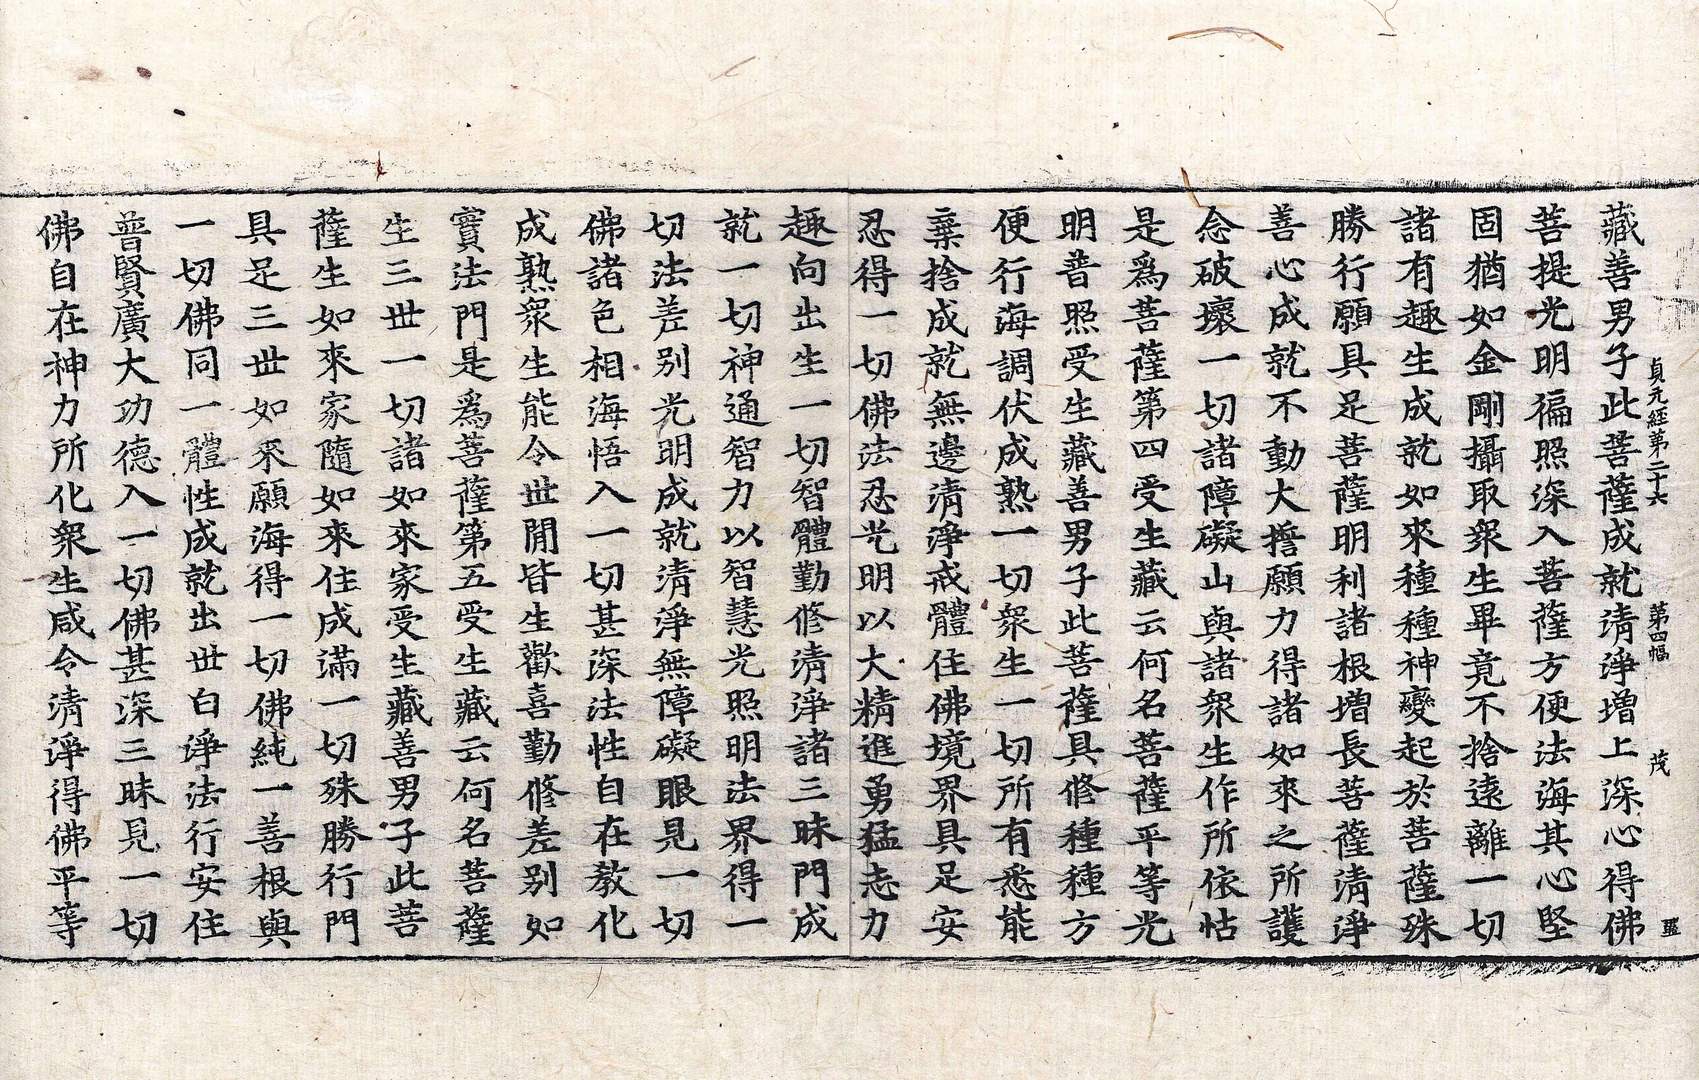 貞元經第二十六　第四幅　茂
藏善男子此菩薩成就清淨增上深心得佛
菩提光明徧照深入菩薩方便法海其心堅
固猶如金剛攝取衆生畢竟不捨遠離一切
諸有趣生成就如來種種神變起於菩薩殊
勝行願具足菩薩明利諸根增長菩薩清淨
善心成就不動大擔願力得諸如來之所護
念破壞一切諸障礙山與諸衆生作所依怙
是爲菩薩第四受生藏云何名菩薩平等光
明普照受生藏善男子此菩薩具修種種方
便行海調伏成熟一切衆生一切所有悉能
棄捨成就無邊清淨戒體住佛境界具足安
忍得一切佛法忍光明以大精進勇猛志力
趣向出生一切智體勤修清淨諸三昧門成
就一切神通智力以智慧光照明法界得一
切法差别光明成就清淨無障礙眼見一切
佛諸色相海悟入一切甚深法性自在教化
成熟衆生能令世閒皆生歡喜勤修差别如
實法門是爲菩薩第五受生藏云何名菩薩
生三世一切諸如來家受生藏善男子此菩
薩生如來家隨如來住成滿一切殊勝行門
具足三世如來願海得一切佛純一善根與
一切佛同一體性成就出世白淨法行安住
普賢廣大功德入一切佛甚深三昧見一切
佛自在神力所化衆生咸令清淨得佛平等